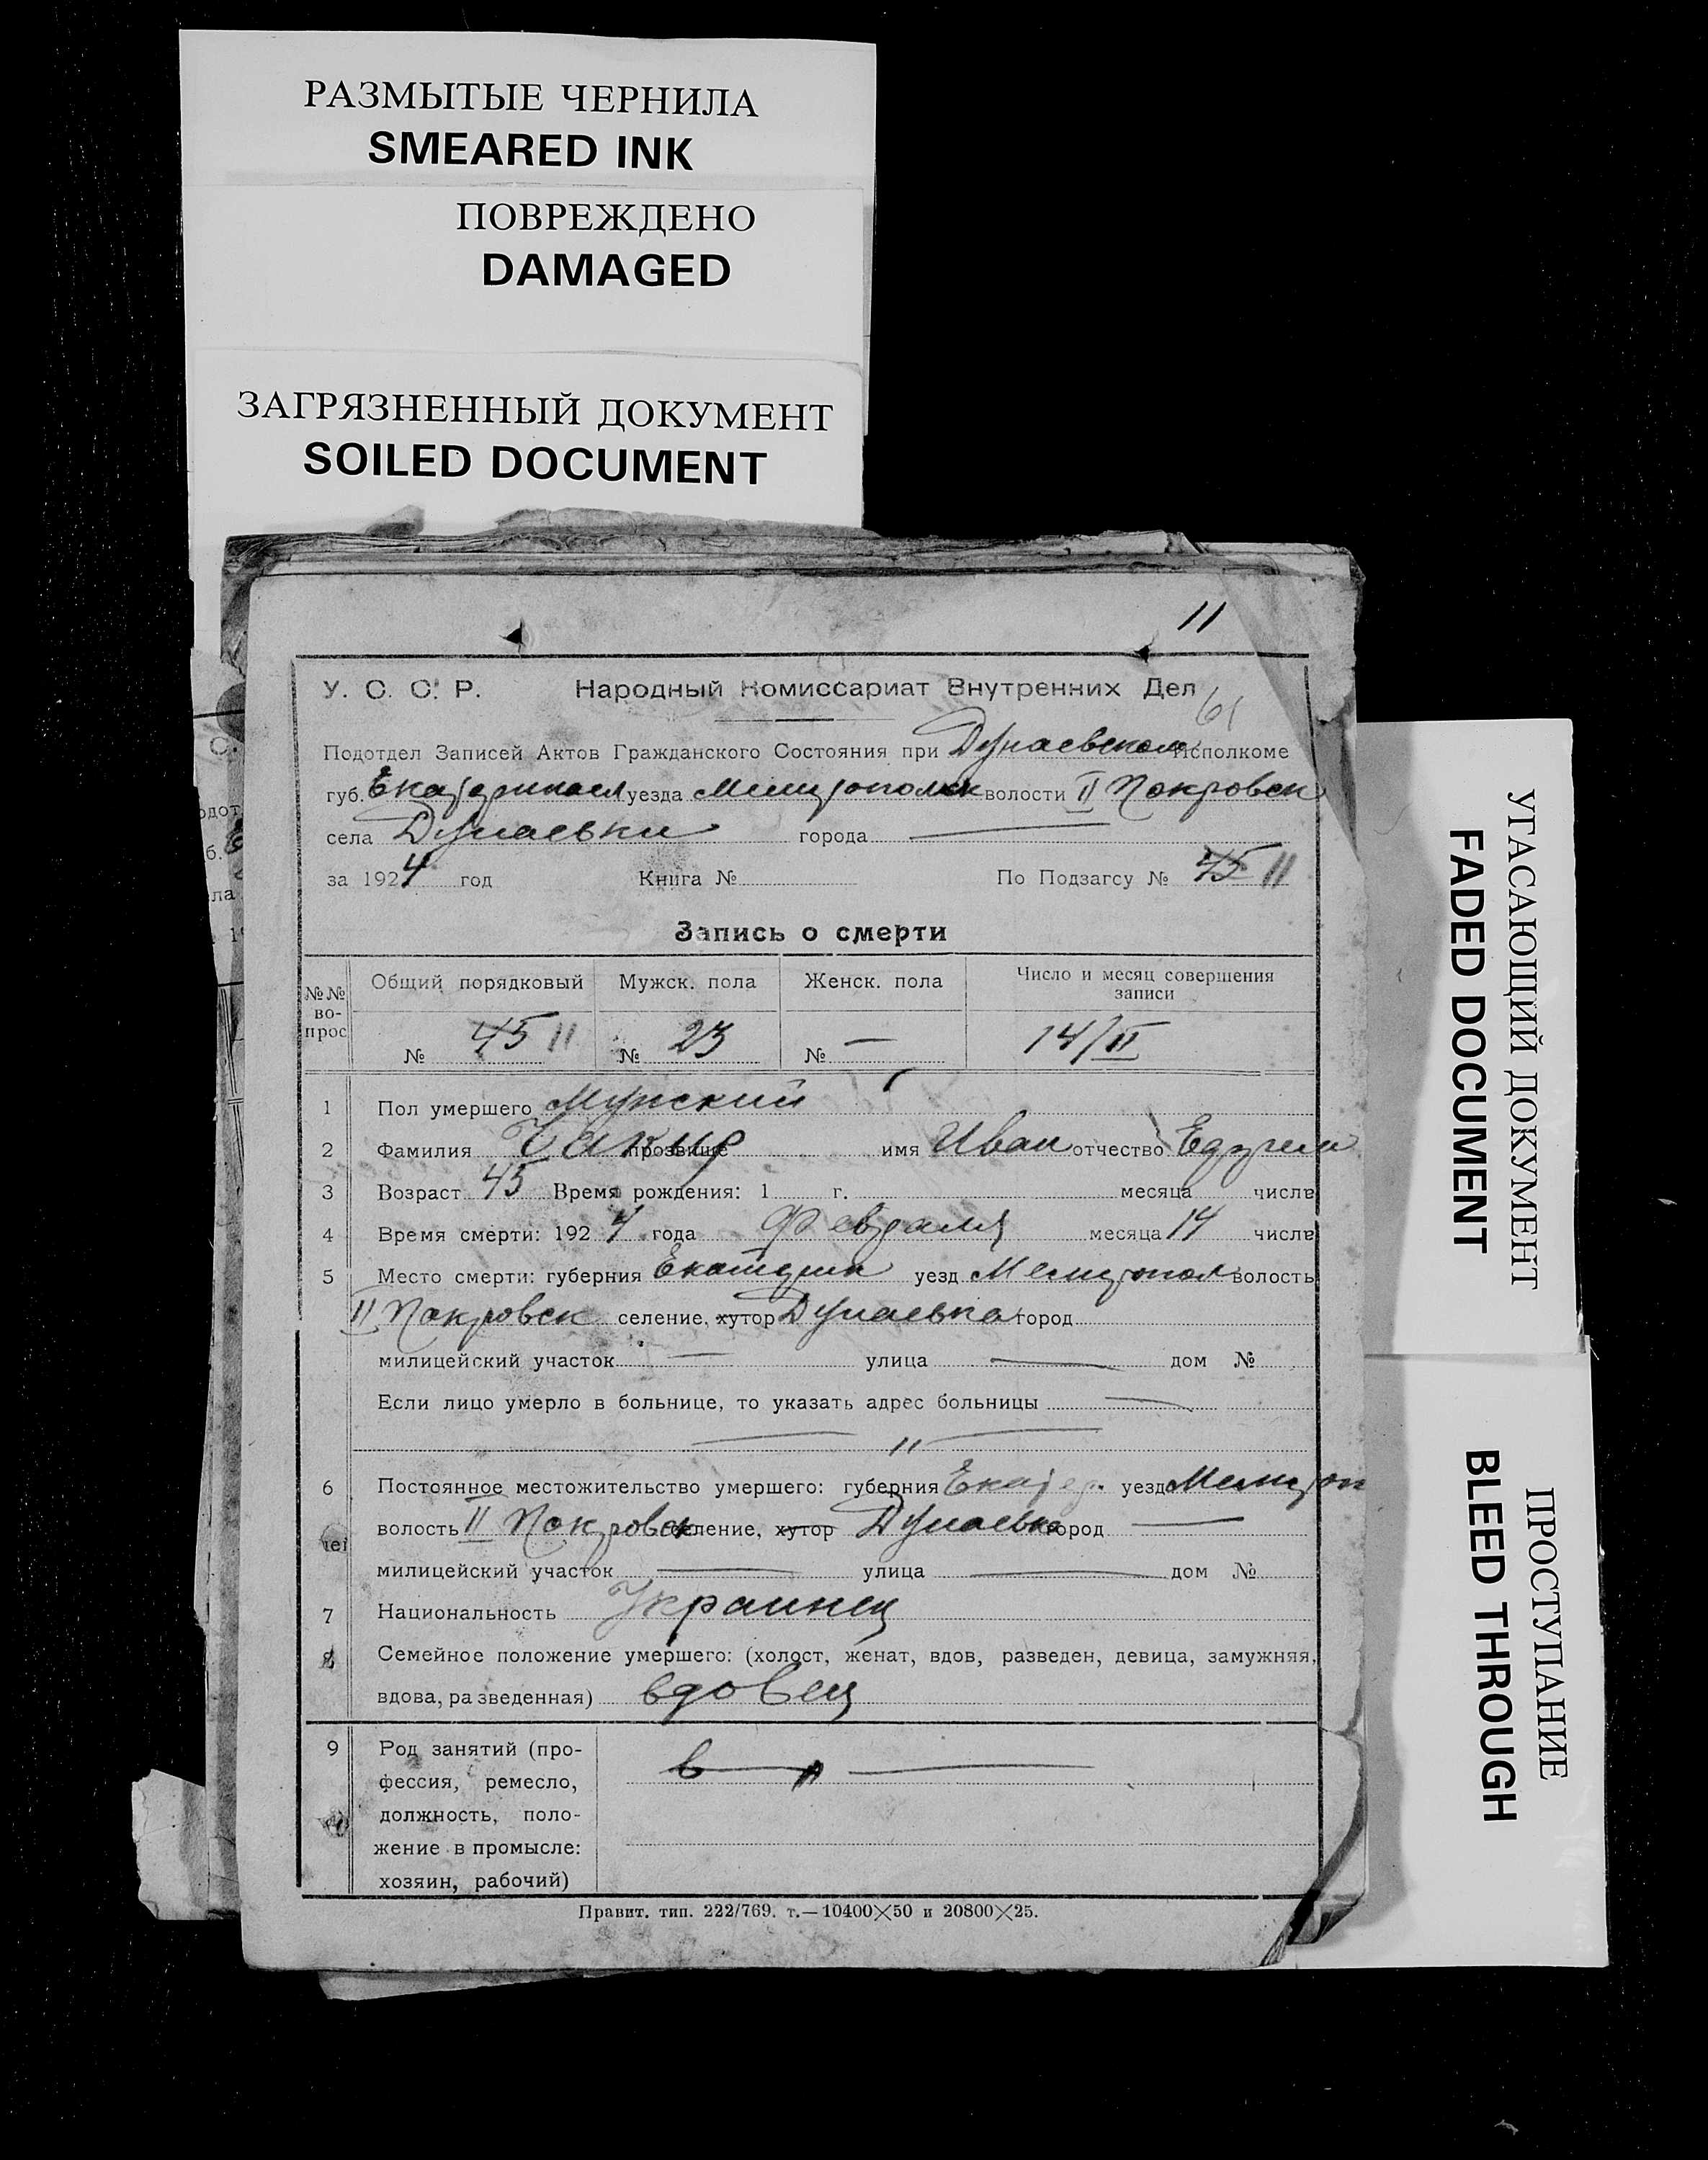 РАЗМЫТЫЕ ЧЕРНИЛА
SMEARED INK
ПОВРЕЖДЕНО
DAMAGED
ЗАГРЯЗНЕННЫЙ ДОКУМЕНТ
SOILED DOCUMENT
11
У. С. С. Р. Народный Комиссариат Внутренних Дел
61
Подотдел Записей Актов Гражданского Состояния при Дунаевском Исполкоме
губ. уезда Мелитополск волости II Покровск
села Дунаевки города
за 1924 год Книга № По Подзагсу № 45 11
Запись о смерти
№№ во-прос Общий порядковый Мужск. пола Женск. пола Число и месяц совершения записи
№ 45 11 № 23 № — 14/II
1 Пол умершего Мужской
2 Фамилия Чакир прозвище имя Иван отчество
3 Возраст 45 Время рождения: 1 г. месяца числа
4 Время смерти: 1924 года Февраля месяца 14 числа
5 Место смерти: губерния Екатерин уезд Мелитопол волость
II Покровск селение, хутор Дунаевка город
милицейский участок — улица — дом №
Если лицо умерло в больнице, то указать адрес больницы —
— " —
6 Постоянное местожительство умершего: губерния Екатер. уезд Мелитоп
волость II Покровск селение, хутор Дунаевка город —
милицейский участок — улица — дом №
7 Национальность Украинец
8 Семейное положение умершего: (холост, женат, вдов, разведен, девица, замужняя,
вдова, разведенная) вдовец
9 Род занятий (про-
фессия, ремесло,
должность, поло-
жение в промысле:
хозяин, рабочий)
Правит. тип. 222/769. т.—10400×50 и 20800×25.
УГАСАЮЩИЙ ДОКУМЕНТ
FADED DOCUMENT
ПРОСТУПАНИЕ
BLEED THROUGH